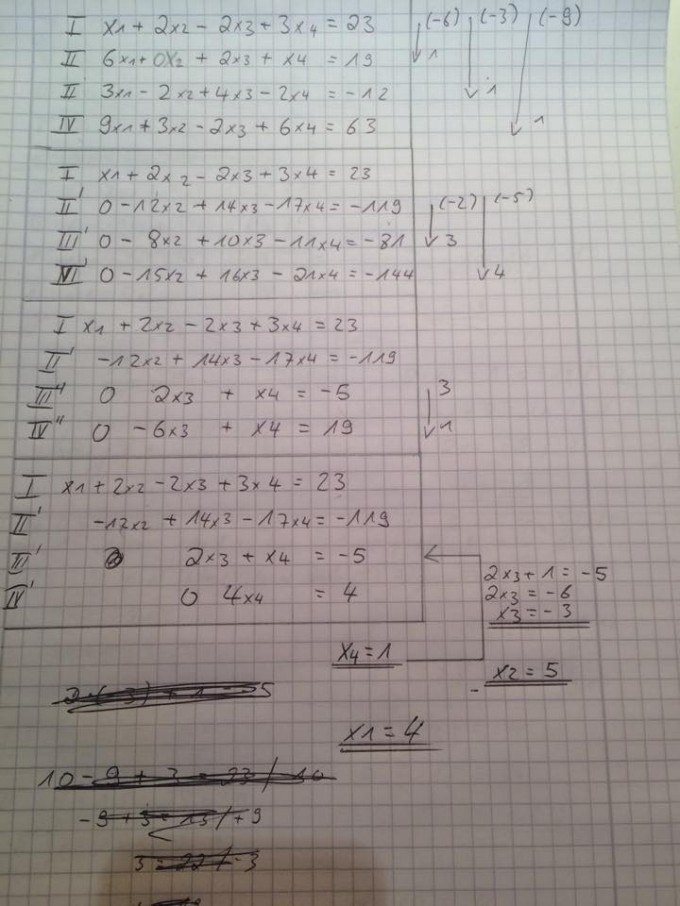 I x1 + 2x2 - 2x3 + 3x4 = 23 (-6) (-3) (-9)
II 6x1 + 0x2 + 2x3 + x4 = 19 1
II 3x1 - 2x2 + 4x3 - 2x4 = -12 1
IV 9x1 + 3x2 - 2x3 + 6x4 = 63 1
I x1 + 2x2 - 2x3 + 3x4 = 23
II' 0 - 12x2 + 14x3 - 17x4 = -119 (-2) (-5)
III' 0 - 8x2 + 10x3 - 11x4 = -81 3
VI' 0 - 15x2 + 16x3 - 21x4 = -144 4
I x1 + 2x2 - 2x3 + 3x4 = 23
II' -12x2 + 14x3 - 17x4 = -119
III'' 0 2x3 + x4 = -5 3
IV'' 0 - 6x3 + x4 = 19 1
I x1 + 2x2 - 2x3 + 3x4 = 23
II' -12x2 + 14x3 - 17x4 = -119
III' 2x3 + x4 = -5
IV' 0 4x4 = 4
2x3 + 1 = -5
2x3 = -6
x3 = -3
x4 = 1
x2 = 5
x1 = 4
10 - 9 + 3 = 23 / -10
-9 + 3 = 13 / +9
3 = 22 / -3